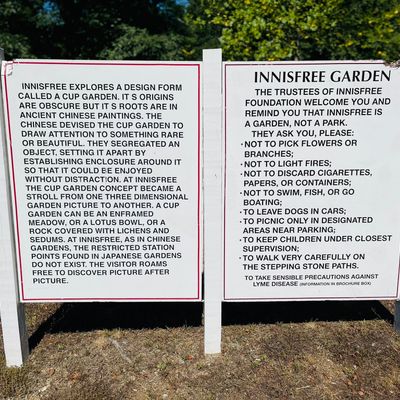 INNISFREE EXPLORES A DESIGN FORM
CALLED A CUP GARDEN. IT S ORIGINS
ARE OBSCURE BUT IT S ROOTS ARE IN
ANCIENT CHINESE PAINTINGS. THE
CHINESE DEVISED THE CUP GARDEN TO
DRAW ATTENTION TO SOMETHING RARE
OR BEAUTIFUL. THEY SEGREGATED AN
OBJECT, SETTING IT APART BY
ESTABLISHING ENCLOSURE AROUND IT
SO THAT IT COULD BE ENJOYED
WITHOUT DISTRACTION. AT INNISFREE
THE CUP GARDEN CONCEPT BECAME A
STROLL FROM ONE THREE DIMENSIONAL
GARDEN PICTURE TO ANOTHER. A CUP
GARDEN CAN BE AN ENFRAMED
MEADOW, OR A LOTUS BOWL, OR A
ROCK COVERED WITH LICHENS AND
SEDUMS. AT INNISFREE, AS IN CHINESE
GARDENS, THE RESTRICTED STATION
POINTS FOUND IN JAPANESE GARDENS
DO NOT EXIST. THE VISITOR ROAMS
FREE TO DISCOVER PICTURE AFTER
PICTURE.
INNISFREE GARDEN
THE TRUSTEES OF INNISFREE
FOUNDATION WELCOME YOU AND
REMIND YOU THAT INNISFREE IS
A GARDEN, NOT A PARK.
THEY ASK YOU, PLEASE:
·NOT TO PICK FLOWERS OR
BRANCHES;
·NOT TO LIGHT FIRES;
·NOT TO DISCARD CIGARETTES,
PAPERS, OR CONTAINERS;
·NOT TO SWIM, FISH, OR GO
BOATING;
·TO LEAVE DOGS IN CARS;
·TO PICNIC ONLY IN DESIGNATED
AREAS NEAR PARKING;
·TO KEEP CHILDREN UNDER CLOSEST
SUPERVISION;
·TO WALK VERY CAREFULLY ON
THE STEPPING STONE PATHS.
·TO TAKE SENSIBLE PRECAUTIONS AGAINST
LYME DISEASE (INFORMATION IN BROCHURE BOX)